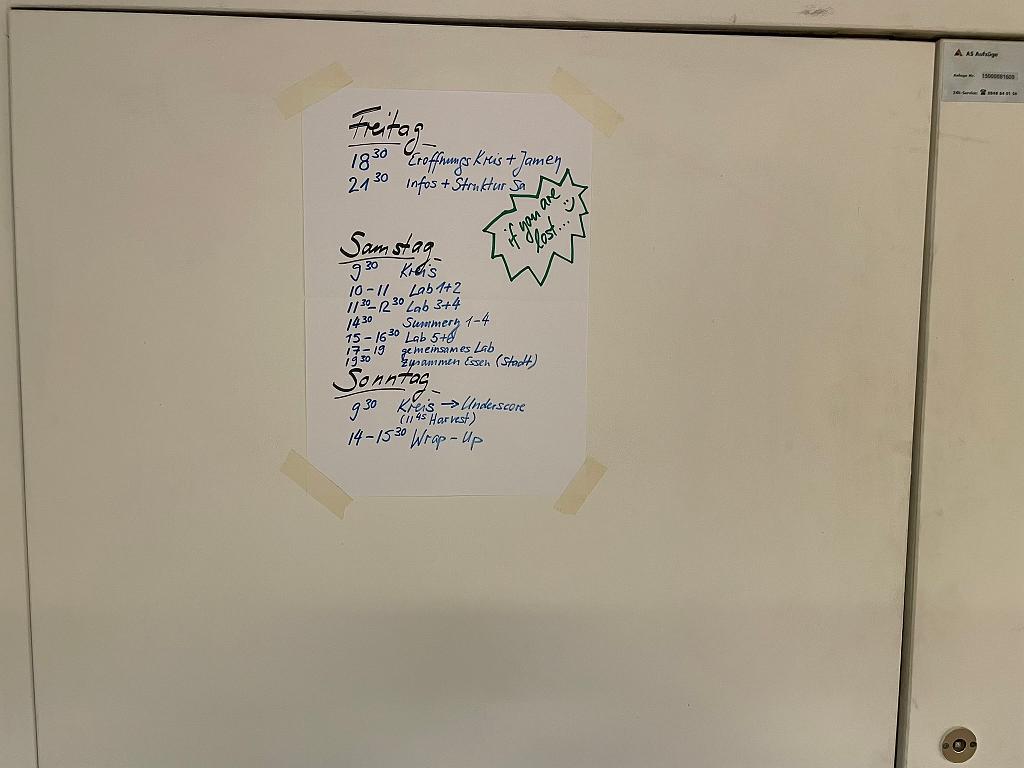 Freitag
18 30 Eröffnungs Kreis + Jamen
21 30 Infos + Struktur Sa
if you are
lost...
Samstag
9 30 Kreis
10-11 Lab 1+2
11 30-12 30 Lab 3+4
14 30 Summery 1-4
15-16 30 Lab 5+6
17-19 gemeinsames Lab
19 30 zusammen Essen (Stadt)
Sonntag
9 30 Kreis → Underscore
(11 45 Harvest)
14-15 30 Wrap-Up
AS Aufzüge
Anlage Nr.
24h-Service: ☎ 0848 84 01 04